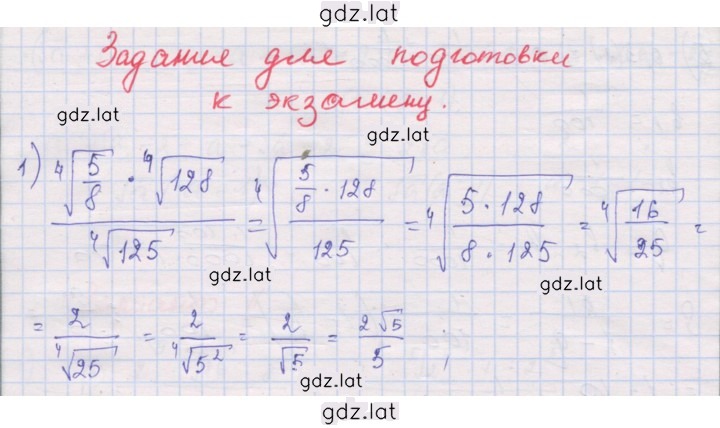 gdz.lat
Задания для подготовки
к экзамену.
gdz.lat
gdz.lat
1) (⁴√(5/8) · ⁴√128) / ⁴√125 = ⁴√((5/8 · 128) / 125) = ⁴√((5 · 128) / (8 · 125)) = ⁴√(16/25) =
gdz.lat
gdz.lat
= 2/⁴√25 = 2/⁴√5² = 2/√5 = 2√5/5 ;
gdz.lat
gdz.lat